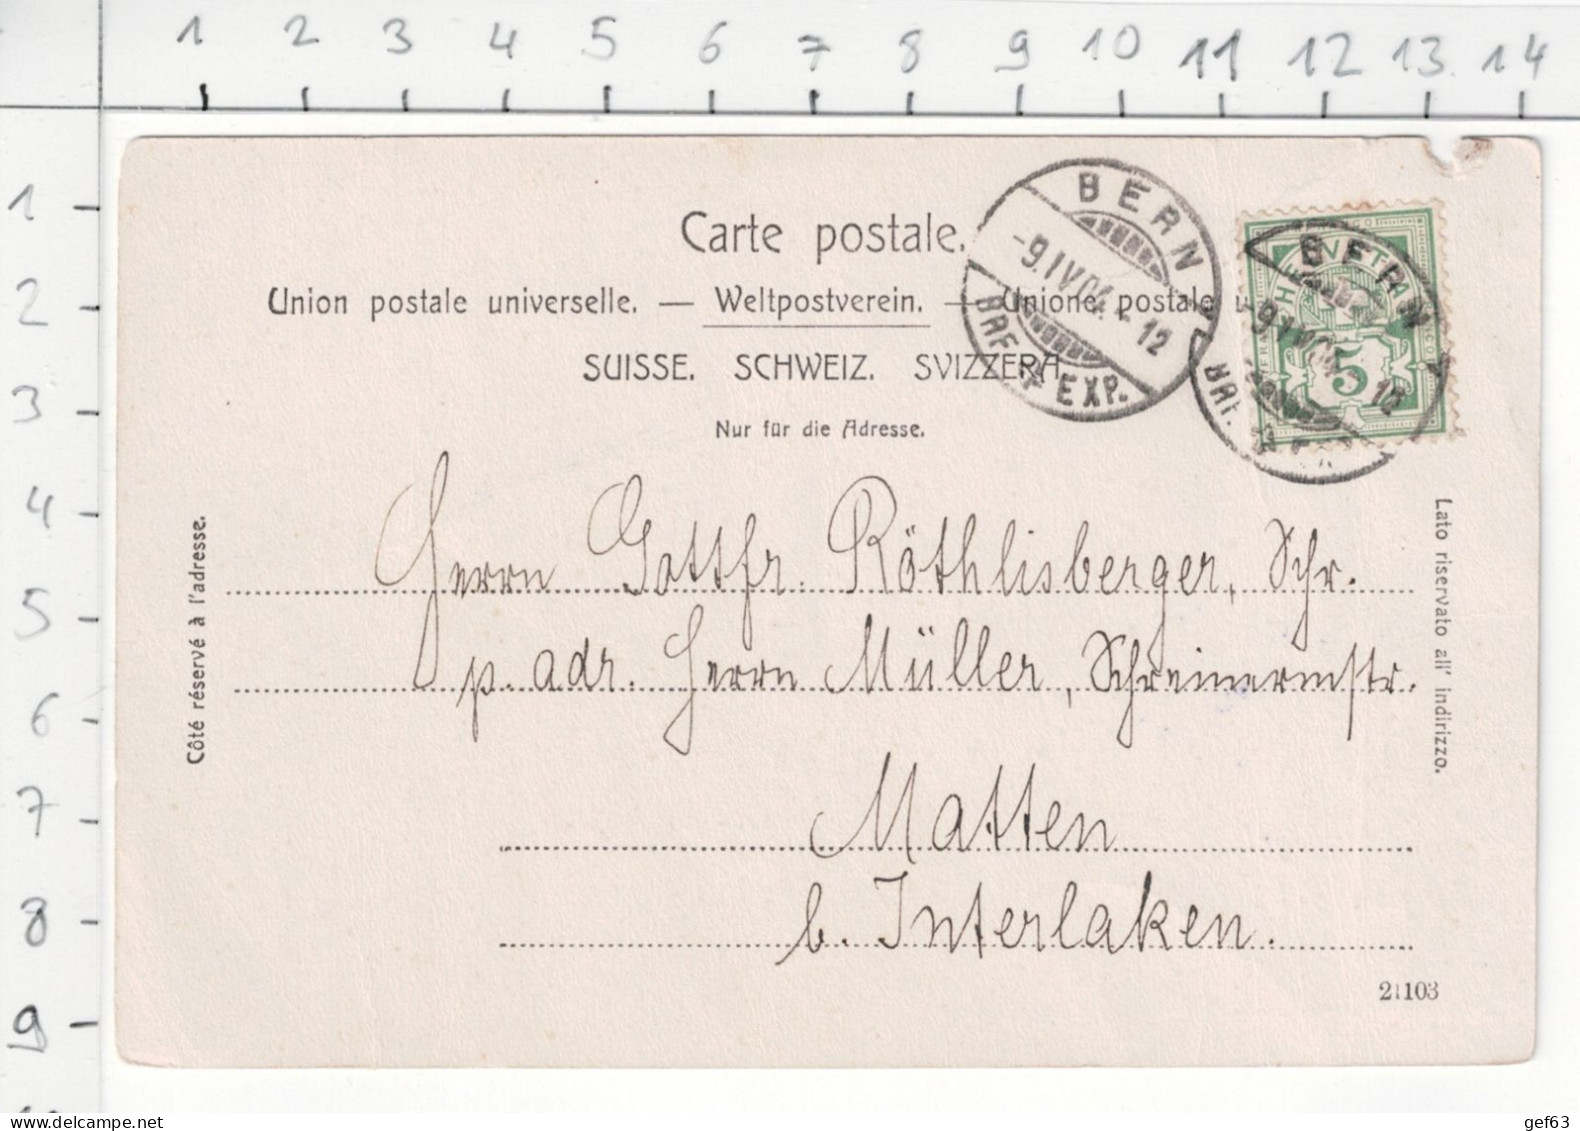 1 2 3 4 5 6 7 8 9 10 11 12 13 14
1
2
3
4
5
6
7
8
9
Carte postale.
Union postale universelle. — Weltpostverein. — Unione postale u
SUISSE. SCHWEIZ. SVIZZERA.
Nur für die Adresse.
BERN
-9.IV04.-12
BRF. EXP.
HELVETIA
5
BERN
-9.IV04. 12
BRF.
Côté réservé à l'adresse.
Lato riservato all' indirizzo.
Herrn Gottfr. Röthlisberger, Schr.
p. adr. Herrn Müller, Schreinermstr.
Matten
b. Interlaken.
21103
gef63